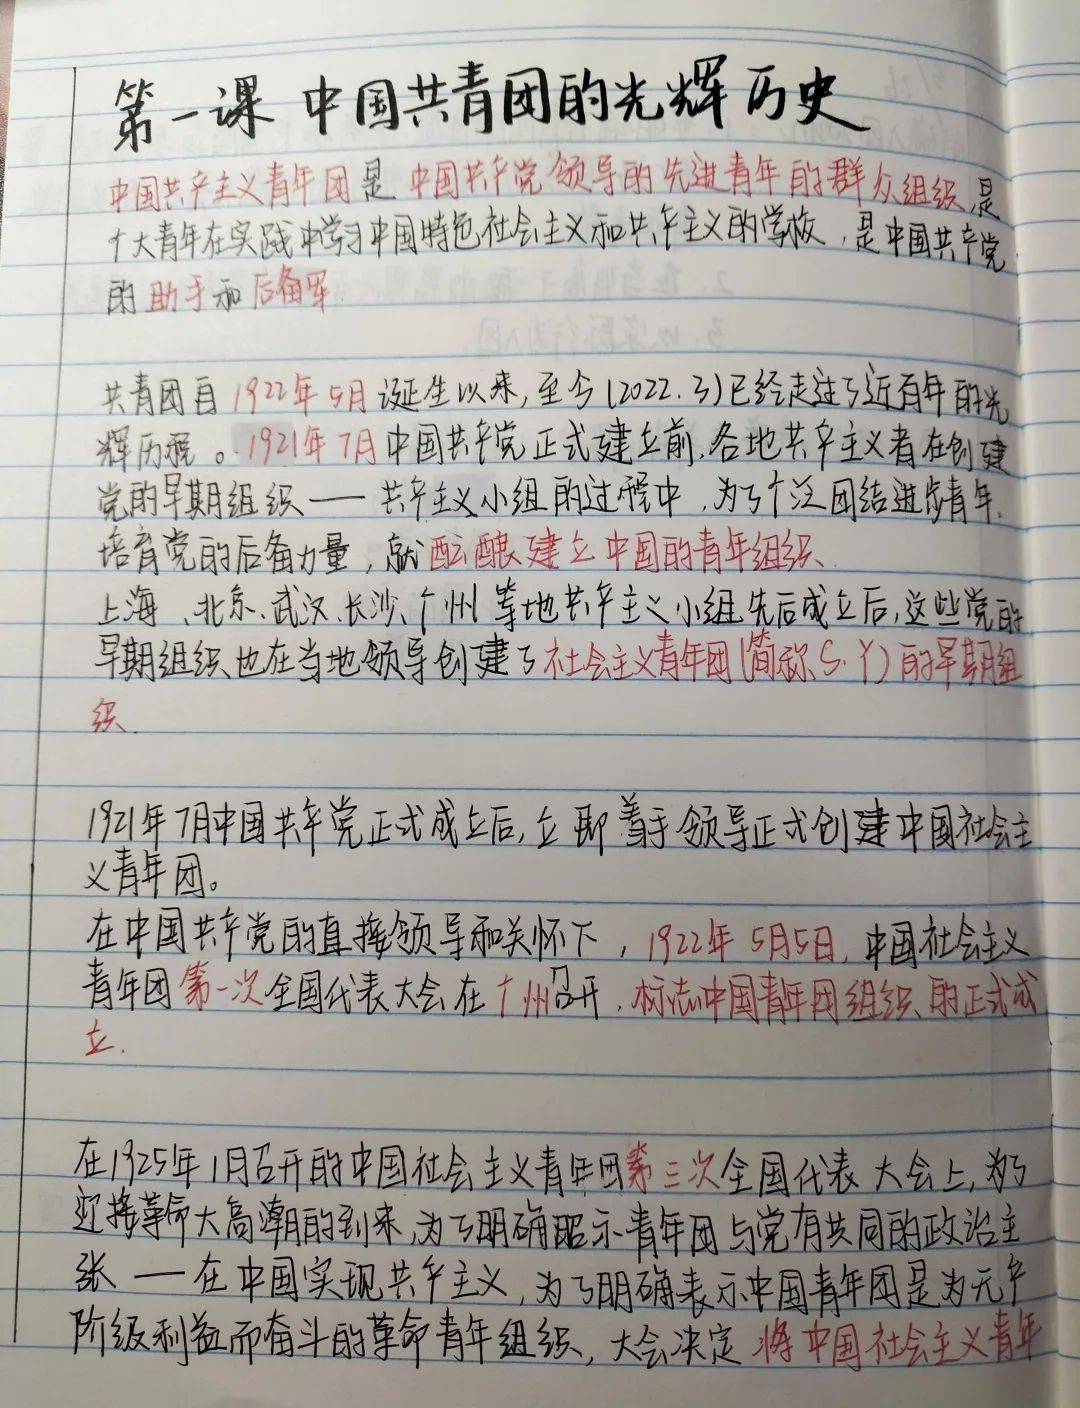 第一课 中国共青团的光辉历史
中国共产主义青年团是中国共产党领导的先进青年的群众组织,是
广大青年在实践中学习中国特色社会主义和共产主义的学校,是中国共产党
的助手和后备军.
共青团自1922年5月诞生以来,至今(2022.3)已经走过了近百年的光
辉历程。1921年7月中国共产党正式建立前,各地共产主义者在创建
党的早期组织——共产主义小组的过程中,为了广泛团结进步青年,
培育党的后备力量,就酝酿建立中国的青年组织.
上海、北京、武汉、长沙、广州等地共产主义小组先后成立后,这些党的
早期组织也在当地领导创建了社会主义青年团(简称S.Y)的早期组
织.
1921年7月中国共产党正式成立后,立即着手领导正式创建中国社会主
义青年团。
在中国共产党的直接领导和关怀下,1922年5月5日,中国社会主义
青年团第一次全国代表大会在广州召开,标志中国青年团组织的正式成
立.
在1925年1月召开的中国社会主义青年团第三次全国代表大会上,为了
迎接革命大高潮的到来,为了明确昭示青年团与党有共同的政治主
张——在中国实现共产主义,为了明确表示中国青年团是为无产
阶级利益而奋斗的革命青年组织,大会决定将中国社会主义青年